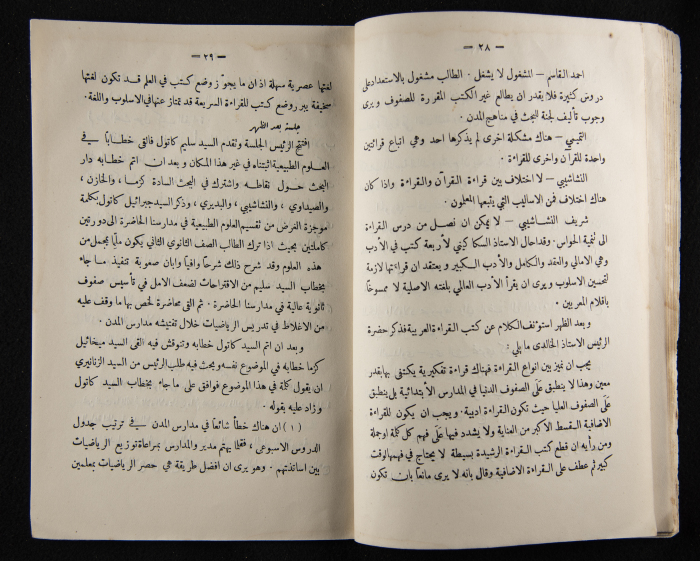 — ٢٨ —
احمد القاسم — المشغول لا يشغل . الطالب مشغول بالاستعداد على
دروس كثيرة فلا يقدر ان يطالع غير الكتب المقررة للصفوف ويرى
وجوب تأليف لجنة للبحث في مناهج المدن .
التميمي — هناك مشكلة اخرى لم يذكرها احد وهي اتباع قرائتين
واحدة للقرآن واخرى للقراءة .
النشاشيبي — لا اختلاف بين قراءة القرآن والقراءة واذا كان
هناك اختلاف فمن الاساليب التي يتبعها المعلمون .
شريف النشاشيبي — لا يمكن ان نصل من درس القراءة
الى تنمية الحواس. وقد احال الاستاذ السكاكيني لأربعة كتب في الأدب
وهي الامالي والعقد والكامل والأدب الكبير ويعتقد ان قراءتها لازمة
لتحسين الاسلوب ويرى ان يقرأ الأدب العالمي بلغته الاصلية لا ممسوخاً
باقلام المعربين .
وبعد الظهر استؤنف الكلام عن كتب القراءة العربية فذكر حضرة
الرئيس الاستاذ الخالدي ما يلي :
يجب ان نميز بين انواع القراءة فهناك قراءة تفكيرية يكتفى بها بقدر
معين وهذا لا ينطبق عَلَى الصفوف الدنيا في المدارس الأبتدائية بل ينطبق
عَلَى الصفوف العليا حيث تكون القراءة ادبية . ويجب ان يكون للقراءة
الاضافية القسط الاكبر من العناية ولا يشدد فيها عَلَى فهم كل كلمة او جملة
ومن رأيه ان قطع كتب القراءة الرشيدة بسيطة لا يحتاج في فهمها لوقت
كبير ثم عطف على القراءة الاضافية وقال بانه لا يرى مانعاً بان تكون
— ٢٩ —
لغتها عصرية سهلة اذ ان ما يجوّز وضع كتب في العلم قد تكون لغتها
سخيفة يبرر وضع كتب للقراءة السريعة قد تمتاز عنها في الاسلوب واللغة.
جلسة بعد الظهر
افتتح الرئيس الجلسة وتقدم السيد سليم كاتول فالقى خطاباً في
العلوم الطبيعية اثبتناه في غير هذا المكان وبعد ان اتم خطابه دار
البحث حول نقاطه واشترك في البحث السادة كرما ، والخازن ،
والصيداوي ، والنشاشيبي ، والبديري ، وذكر السيد جبرائيل كاتول بكلمة
موجزة الغرض من تقسيم العلوم الطبيعية في مدارسنا الحاضرة الى دورتين
كاملتين بحيث اذا ترك الطالب الصف الثانوي الثاني يكون ملمّاً بمجمل من
هذه العلوم وقد شرح ذلك شرحاً وافياً وابان صعوبة تنفيذ ما جاء
بخطاب السيد سليم من الاقتراحات لضعف الامل في تأسيس صفوف
ثانوية عالية في مدارسنا الحاضرة . ثم القى محاضرة لخص بها ما وقف عليه
من الاغلاط في تدريس الرياضيات خلال تفتيشه مدارس المدن .
وبعد ان اتم السيد كاتول خطابه ونوقش فيه القى السيد ميخائيل
كرما خطابه في الموضوع نفسه وبحث فيه طلب الرئيس من السيد الزنانيري
ان يقول كلمة في هذا الموضوع فوافق على ما جاء بخطاب السيد كاتول
وزاد عليه بقوله .
( ١ ) ان هناك خطأ شائعاً في مدارس المدن في ترتيب جدول
الدروس الاسبوعي ، فقلما يهتم مدير والمدارس بمراعاة توزيع الرياضيات
بين اساتذتهم . وهو يرى ان افضل طريقة هي حصر الرياضيات بمعلمين